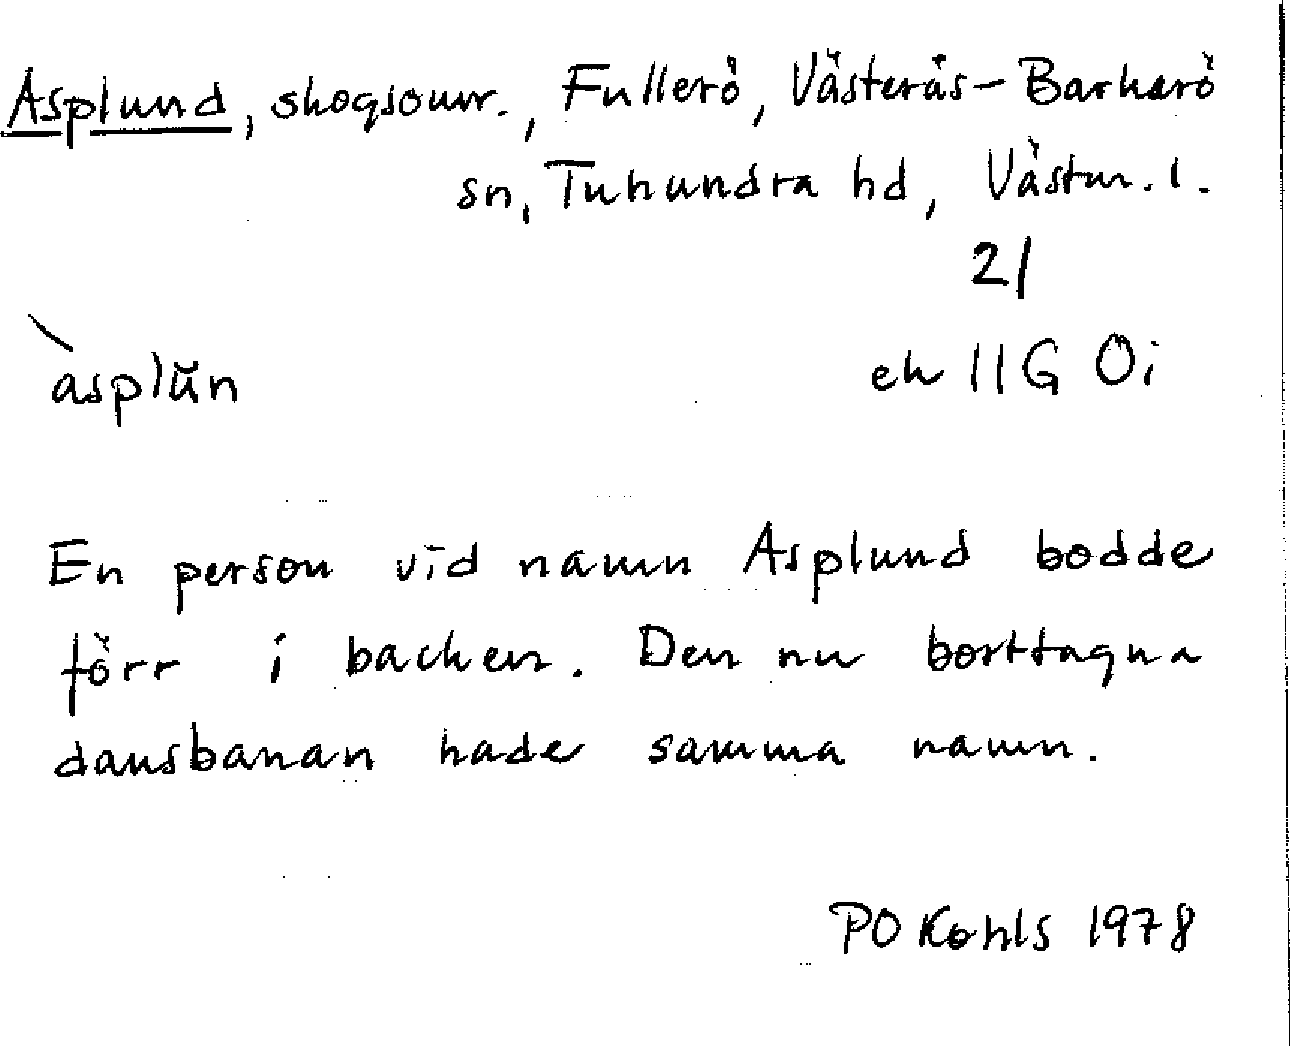 Asplund, skogsomr., Fullerö, Västerås-Barkarö
sn, Tuhundra hd, Västm. l.
2/
ek 11G 0i
`asplŭn
En person vid namn Asplund bodde
förr i backen. Den nu borttagna
dansbanan hade samma namn.
PO Kohls 1978